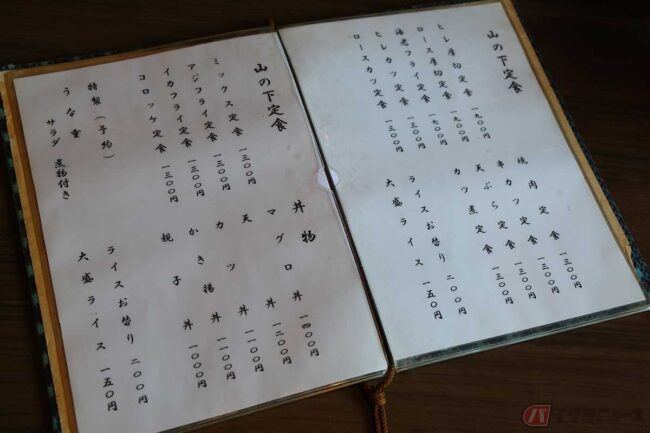 山の下定食
ヒレ厚切定食 一九〇〇円
ロース厚切定食 一九〇〇円
海老フライ定食 一七〇〇円
ヒレカツ定食 一三〇〇円
ロースカツ定食 一三〇〇円
焼肉定食 一三〇〇円
串カツ定食 一三〇〇円
天ぷら定食 一三〇〇円
カツ煮定食 一三〇〇円
ライスお替り 二〇〇円
大盛ライス 一五〇円
山の下定食
ミックス定食 一三〇〇円
アジフライ定食 一三〇〇円
イカフライ定食 一三〇〇円
コロッケ定食 一三〇〇円
特製(予約)
うな重
サラダ 煮物付き
丼物
マグロ丼 一四〇〇円
天丼 一二〇〇円
カツ丼 一一〇〇円
かき揚丼 一一〇〇円
親子丼 一〇〇〇円
ライスお替り 二〇〇円
大盛ライス 一五〇円
バイクのニュース